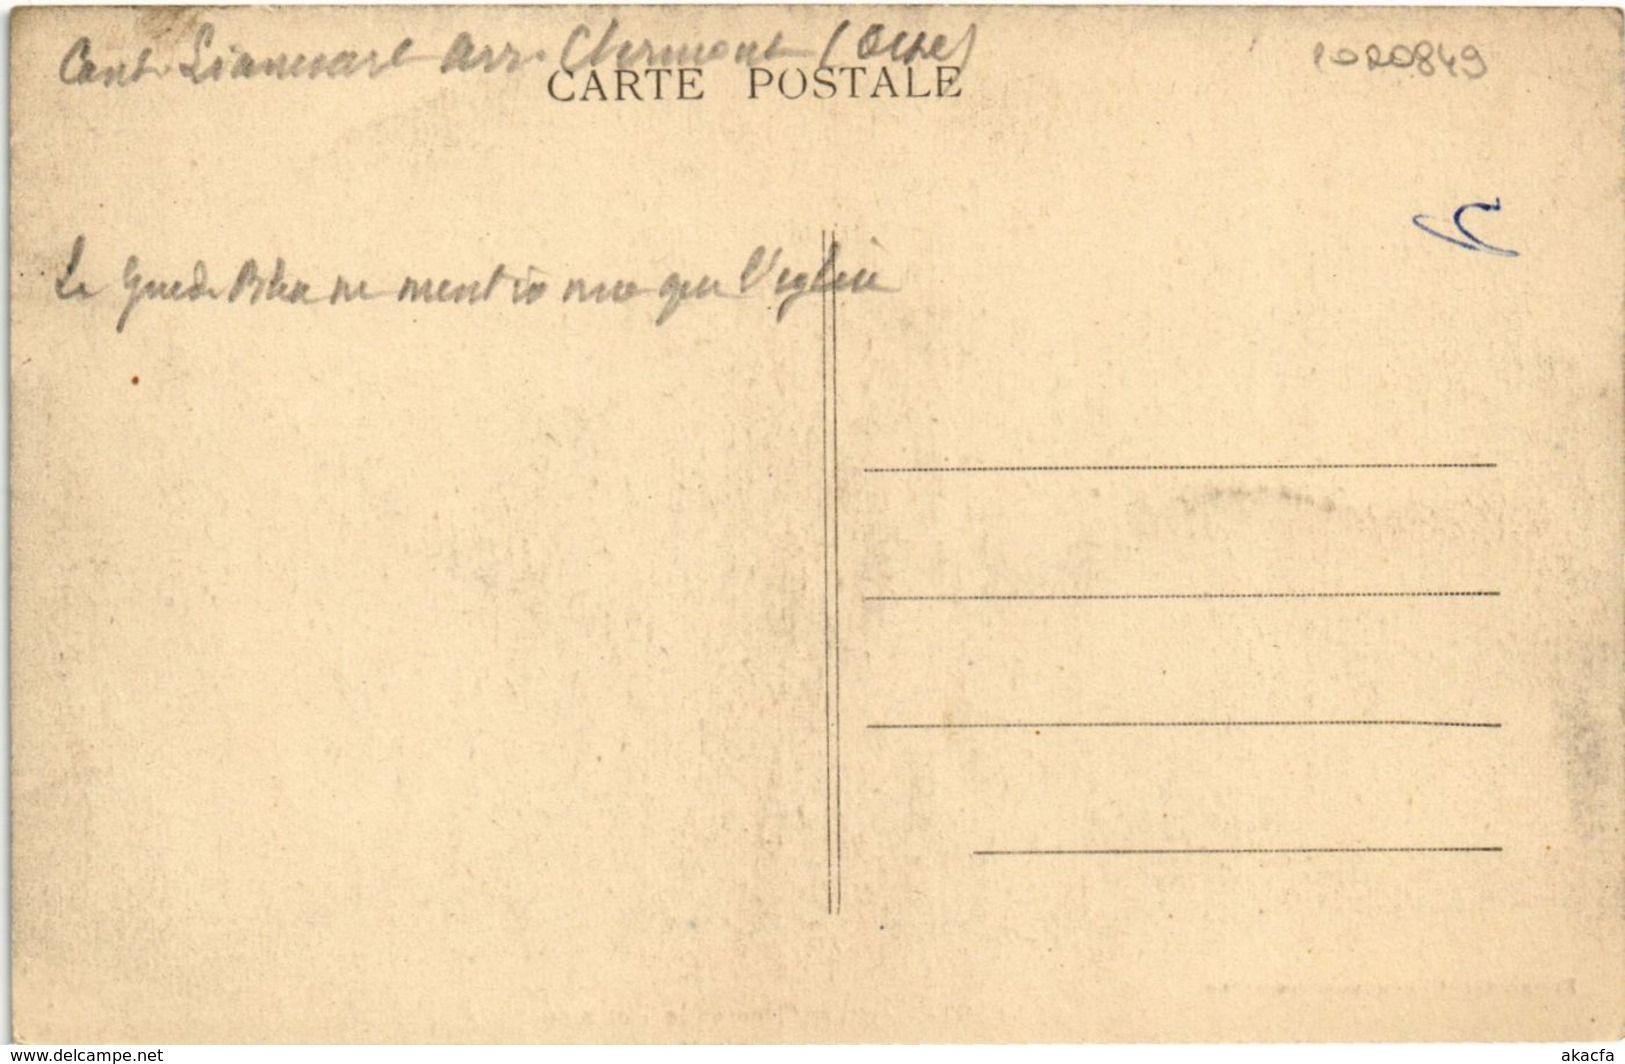 Cant. Liancourt Arr. Clermont (Oise)
1020849
CARTE POSTALE
Le Guide Bleu ne mentionne que l'église
www.delcampe.net
akacfa